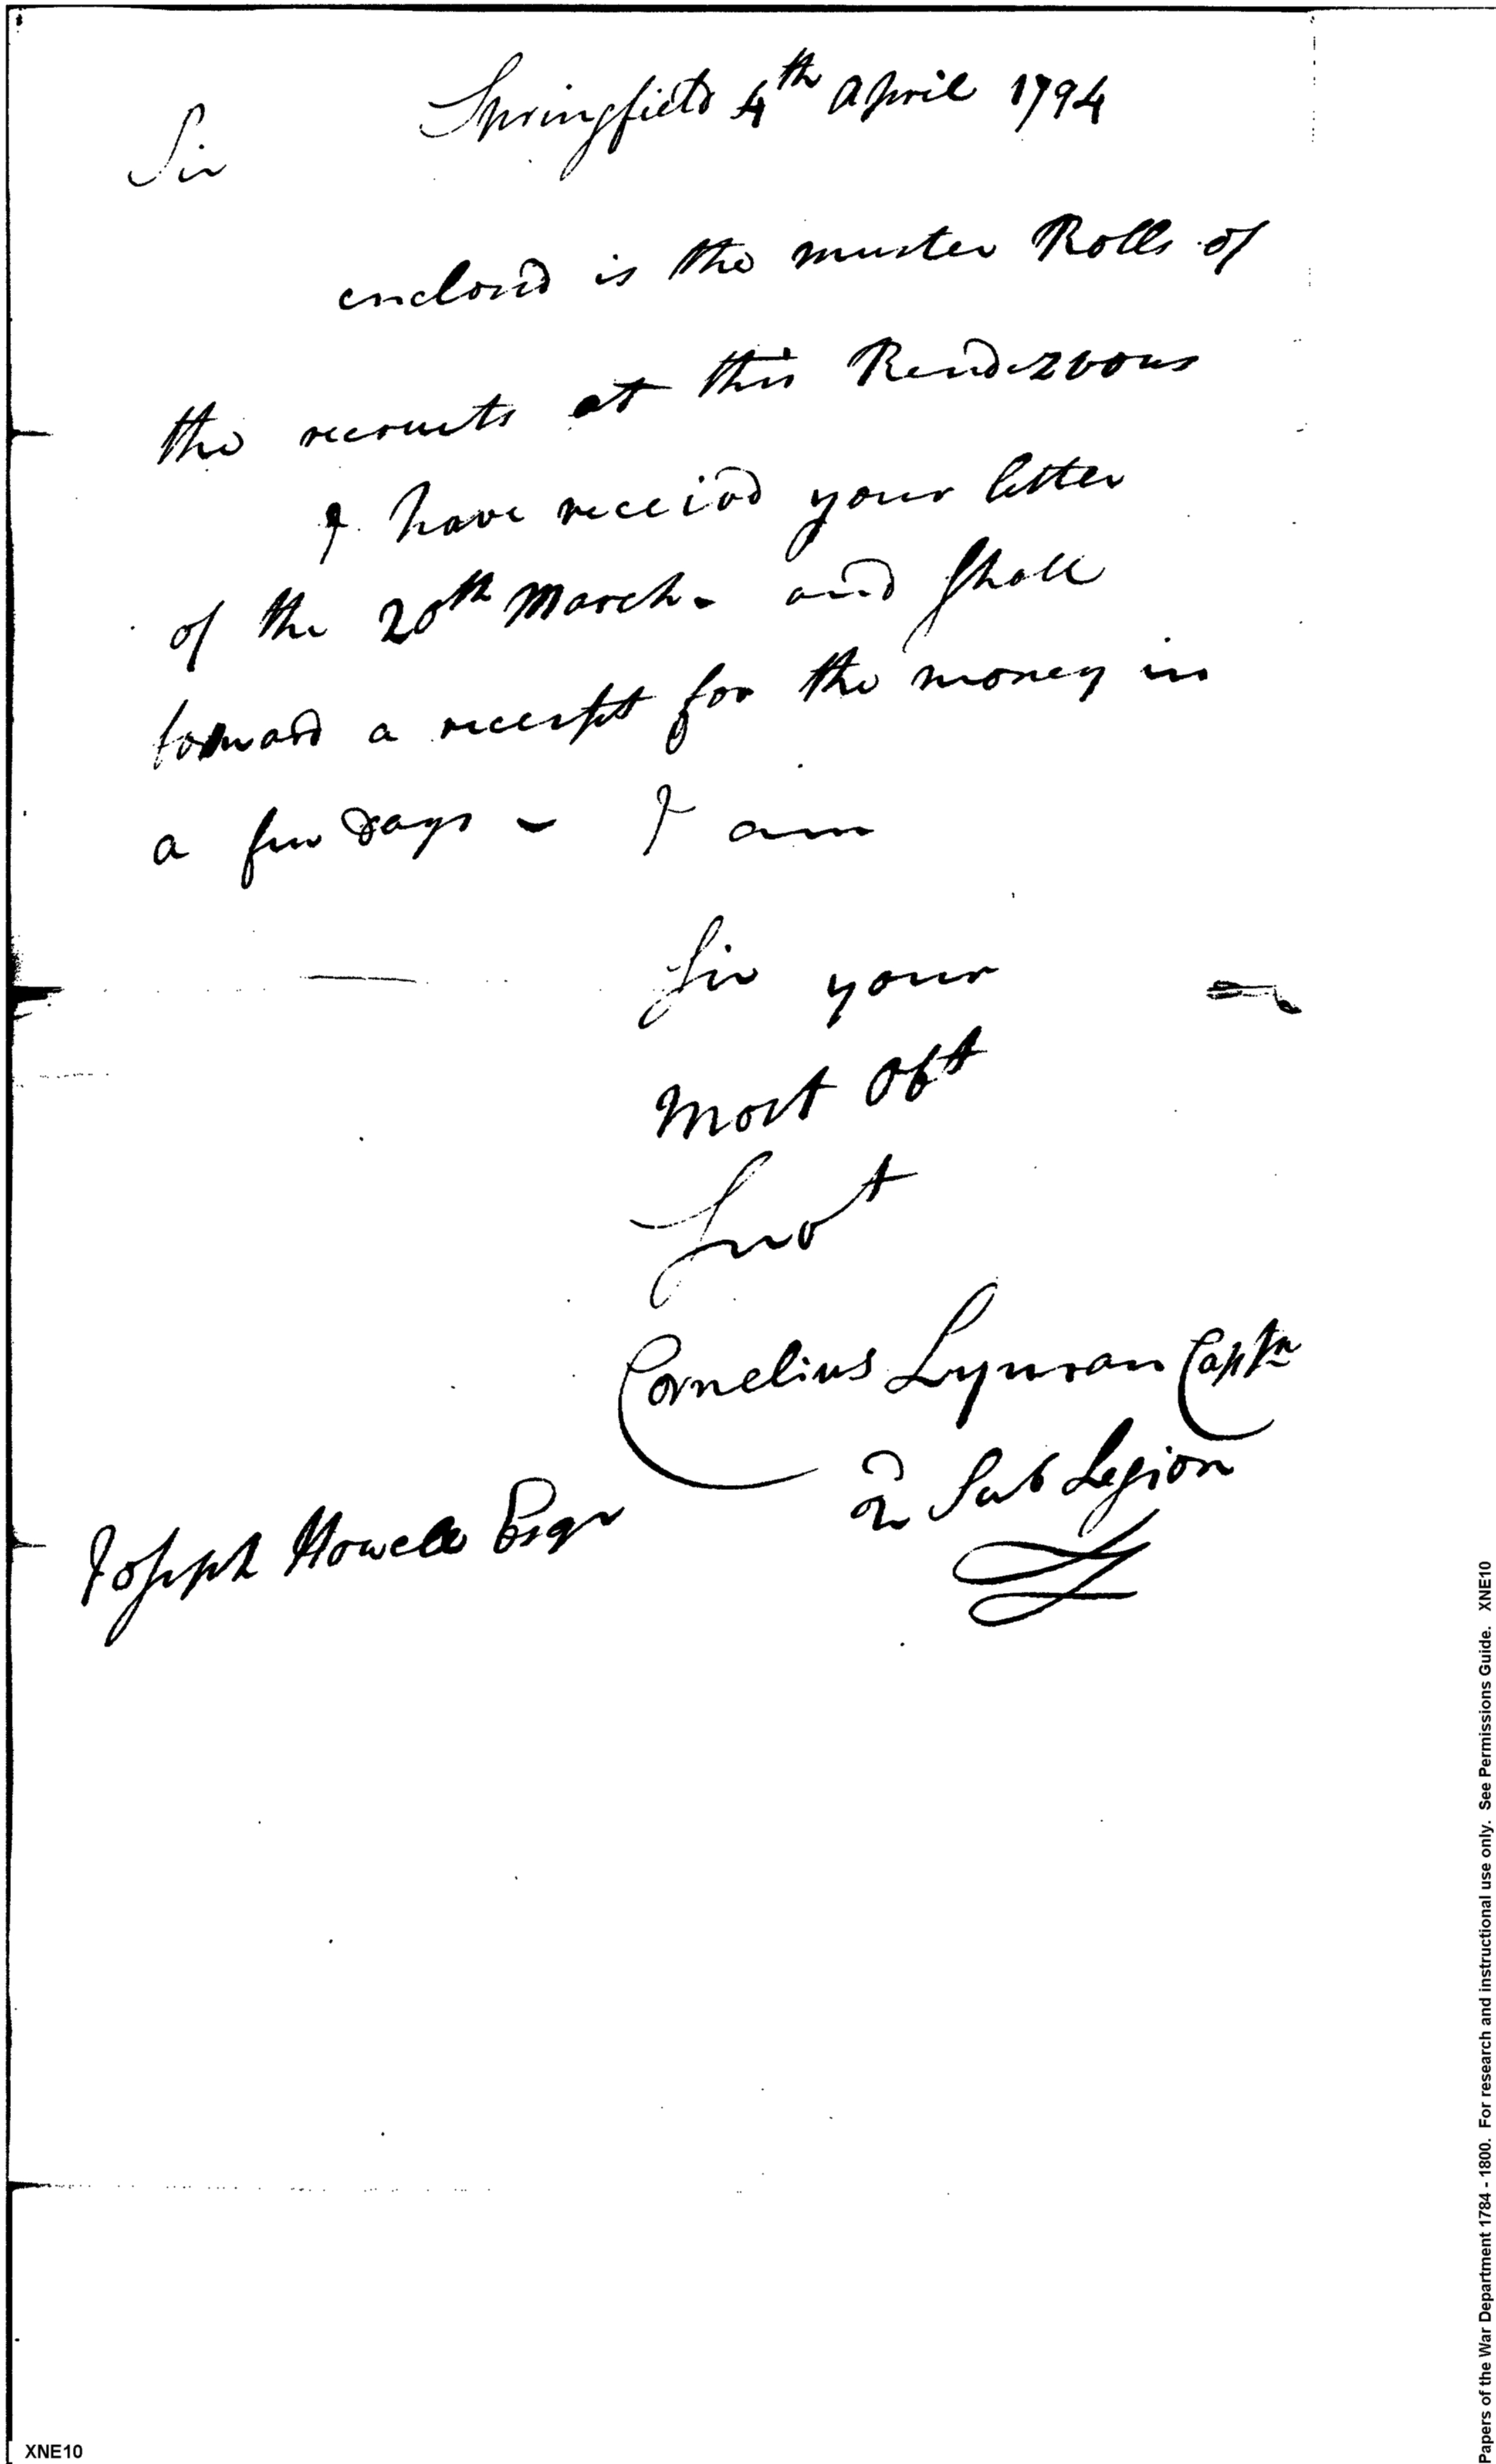 Springfield 4th April 1794
Sir
enclosd is the muster Rolls of
the recruits at this Rendezvous
I have receivd your letter
of the 20th March - and shall
forward a receipt for the money in
a few days - I am
Sir your
most Obt
Servt
Cornelius Lyman Captn
2d Sub Legion
Joseph Howell Esqr
Papers of the War Department 1784 - 1800. For research and instructional use only. See Permissions Guide. XNE10
XNE10